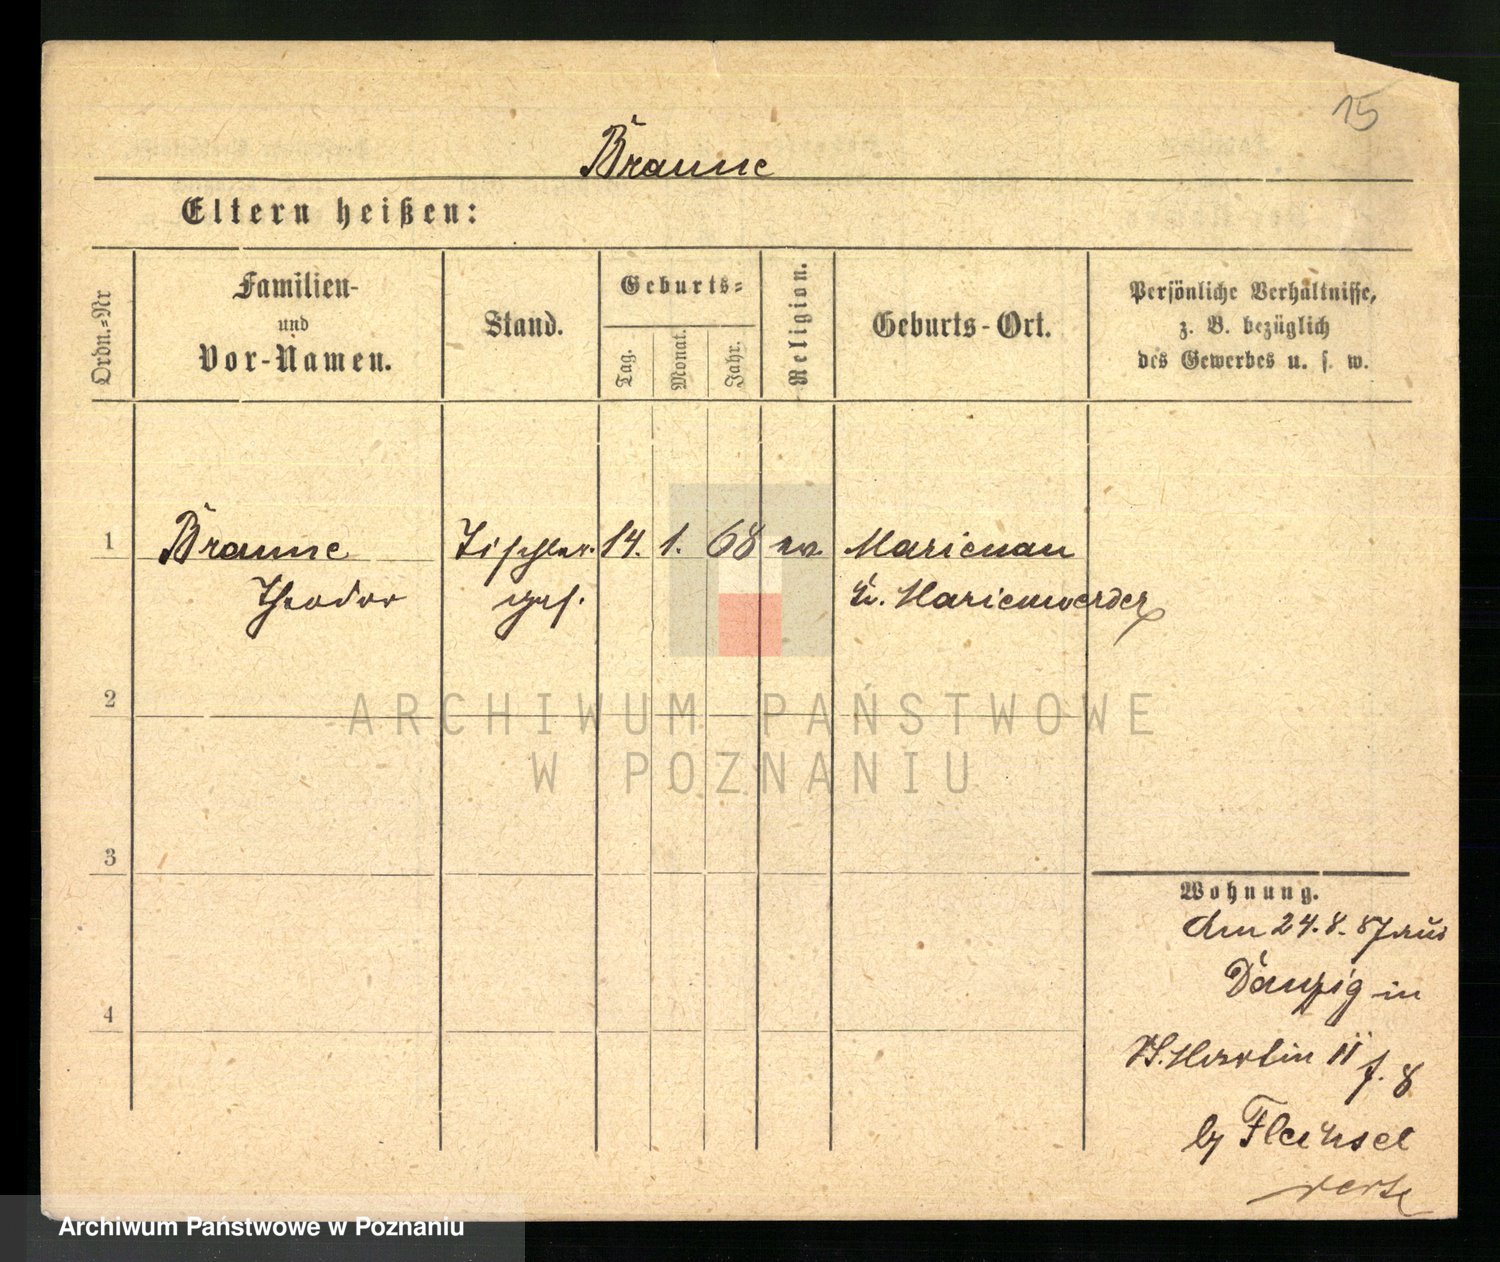 15
Braune
Eltern heißen:
Ordn.=Nr
Familien-
und
Vor-Namen.
Stand.
Geburts=
Tag.
Monat.
Jahr.
Religion.
Geburts-Ort.
Persönliche Verhältnisse,
z. B. bezüglich
des Gewerbes u. s. w.
1
Braune
Theodor
Tischler.
ges.
14.
1.
68
ev.
Marienau
Kr. Marienwerder
2
3
4
Wohnung.
Am 24.8.87 aus
Danzig in
St. Martin 11
8
by Flechsel
verte
ARCHIWUM PAŃSTWOWE
W POZNANIU
Archiwum Państwowe w Poznaniu